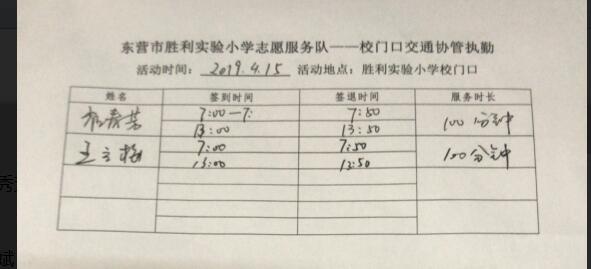 东营市胜利实验小学志愿服务队——校门口交通协管执勤
活动时间：2019.4.15 活动地点：胜利实验小学校门口
姓名 签到时间 签退时间 服务时长
7:00—7: 7:50
13:00 13:50 100分钟
王立梅 7:00 7:50
13:00 13:50 100分钟